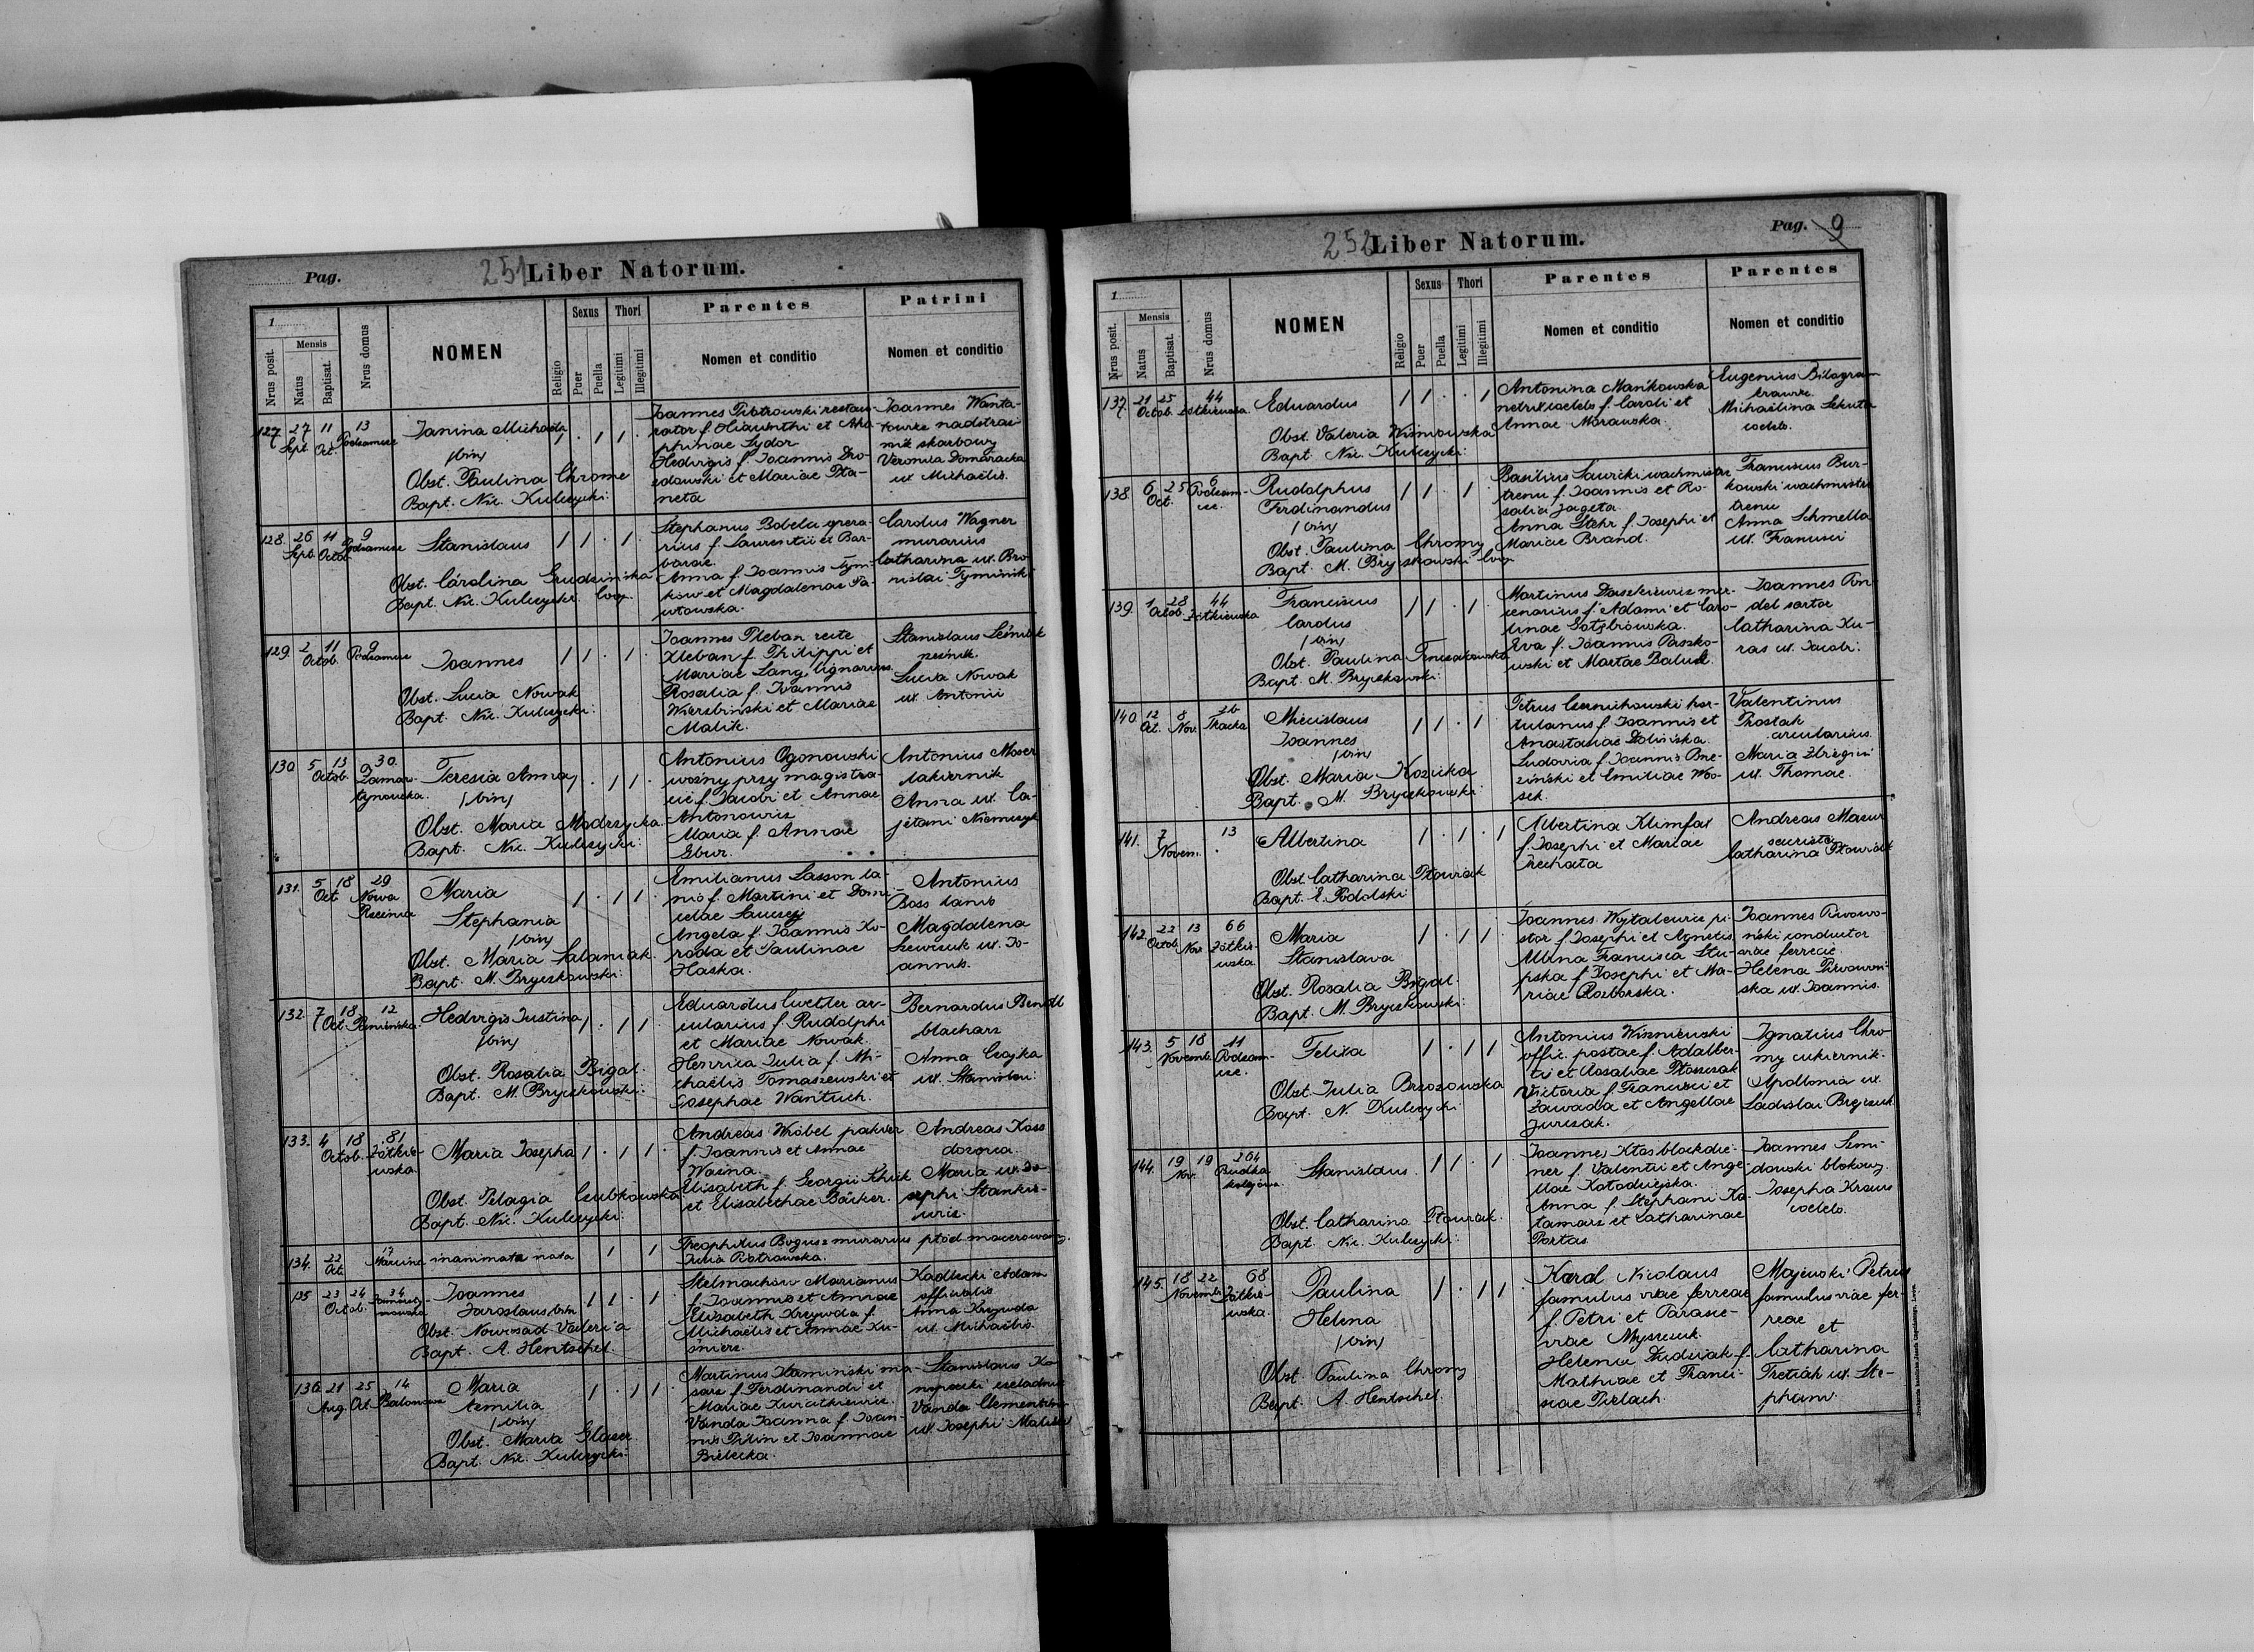 Pag.
251 Liber Natorum.
1
Nrus posit.
Mensis
Natus
Baptisat.
Nrus domus
NOMEN
Religio
Sexus
Puer
Puella
Thori
Legitimi
Illegitimi
Parentes
Nomen et conditio
Patrini
Nomen et conditio
127. 27 Sept. 11 Oct. 13 Podzamcze
Janina Michaela
/bin/
Obst. Paulina Chrome
Bapt. Nic. Kulczycki
Joannes Piotrowski restau-
rator f. Hiacinthi et Aga-
phinae Sydor
Hedvigis f. Joannis Dro-
zdowski et Mariae Pla-
neta
Joannes Wanta-
nadstraż-
nik skarbowy
Veronica Domaracka
ux. Michaëlis.
128. 26 Sept. 11 Octob. 9 Podzamcze
Stanislaus
Obst. Carolina Grudzinska
Bapt. Nic. Kulczycki Coop.
Stephanus Bobela opera-
rius f. Laurentii et Bar-
barae.
Anna f. Joannis Tym-
ków et Magdalenae Pa-
włowska.
Carolus Wagner
murarius
Catharina ux. Bro-
nislai Tyminski
129. 2 Octob. 11 9 Podzamcze
Joannes
Obst. Lucia Nowak
Bapt. Nic. Kulczycki:
Joannes Pleban recte
Kleban f. Philippi et
Mariae Lang, lignarius
Rosalia f. Joannis
Wierzbinski et Mariae
Malik.
Stanislaus Leśniak
rzeźnik.
Lucia Nowak
ux. Antonii
130 5 13 Octob. 30. Zamar-
stynowska.
Teresia Anna
/bin/
Obst. Maria Modrzycka.
Bapt. Nic. Kulczycki:
Antonius Ogonowski
woźny przy magistra-
cie f. Jacobi et Annae
Antonowicz
Maria f. Annae
Gbur.
Antonius Moser
lakiernik
Anna ux. Ca-
jetani Niemczyk
131. 5 Oct 18 29 Nowa
Rzeźnia
Maria
Stephania
/bin/
Obst. Maria Salamiak.
Bapt. M. Bryczkowski:
Emilianus Sasson la-
nio f. Martini et Domi-
celae
Angela f. Joannis Ko-
roda et Paulinae
Haska.
Antonius
Boss lanio
Magdalena
Szewczuk ux. Jo-
annis.
132. 7 18 Oct. 12 Panieńska.
Hedvigis Justina
/bin/
Obst. Rosalia Bigal.
Bapt. M. Bryczkowski:
Eduardus Cvetler ar-
cularius f. Rudolphi
et Mariae Nowak.
Henrica Julia f. Mi-
chaëlis Tomaszewski et
Josephae Wantuch.
Bernardus Bendl
blacharz
Anna Czajka
ux. Stanislai
133. 4 18 Octob. 81 Żółkie-
wska
Maria Josepha
Obst. Pelagia Czubkowska
Bapt. Nic. Kulczycki:
Andreas Wróbel pakier
f. Joannis et Annae
Waśna.
Elisabeth f. Georgii Khik
et Elisabethae Bäcker.
Andreas Koss
dozorca
Maria ux. Jo-
sephi Stankie-
wicz.
134. 22 Oct. 17 Marcina
inanimata nata
Theophilus Bogusz murarius
Julia Piotrowska.
płód macerowany.
135 23 24 Octob. 34 Zamarsty-
nowska
Joannes
Jaroslaus /bin
Obst. Nowosad Valeria
Bapt. A. Hentschel.
Stelmachów Marianus
f. Joannis et Annae
Elisabeth Krzywda f.
Michaëlis et Annae Ku-
śnierz.
Kadlecki Adam
officialis
Anna Krzywda
ux. Michaëlis.
136 21 Aug. 25 Oct. 14 Balonowa
Maria
Aemilia
/bin/
Obst. Maria Glaser
Bapt. Nic. Kulczycki:
Martinus Kamiński ma-
sarz f. Ferdinandi et
Mariae
Vanda Joanna f. Joan-
nis Pilin et Joannae
Bielecka.
Stanislaus Ko-
nopacki czeladnik
Vanda Clementina
ux. Josephi
Pag. 9
252 Liber Natorum.
1
Nrus posit.
Mensis
Natus
Baptisat.
Nrus domus
NOMEN
Religio
Sexus
Puer
Puella
Thori
Legitimi
Illegitimi
Parentes
Nomen et conditio
Parentes
Nomen et conditio
137. 21 25 Octob. 44 Żółkiewska
Eduardus
Obst. Valeria Wiśniowska
Bapt. Nic. Kulczycki:
Antonina Mańkowska
f. Caroli et
Annae Morawska.
Eugenius Bilogram
krawiec
Michaëlina Sekuta
coelebs.
138. 6 25 Oct. 6 Podzam-
cze.
Rudolphus
Ferdinandus
/bin/
Obst. Paulina Chromy
Bapt. M. Bryczkowski Coop
Basilius Sawicki wachmistrz
trenu f. Joannis et Ro-
salia Jageta.
Anna Stehr f. Josephi et
Mariae Brand.
Franciscus Bur-
kowski wachmistrz
trenu
Anna Schmella
ux. Francisci
139. 1 28 Octob. 44 Żółkiewska
Franciscus
Carolus
/bin/
Obst. Paulina
Bapt. M. Bryczkowski:
Martinus Daszkiewicz mer-
cenarius f. Adami et Caro-
linae Gołębiowska.
Eva f. Joannis Paszko-
wski et Martae
Joannes Pon-
del sartor
Catharina Ku-
ras ux. Jacobi:
140. 12 Oct. 8 Nov. 26 Tkacka
Miecislaus
Joannes
/bin/
Obst. Maria Kozicka
Bapt. M. Bryczkowski:
Petrus Czernichowski hor-
tulanus f. Joannis et
Anastasiae Dolińska.
Ludovia f. Joannis Brze-
ziński et Emiliae Wo-
sek.
Valentinus
Prostak
arcularius.
Maria
ux. Thomae.
141. 7 Novem. 13
Albertina
Obst. Catharina Ptourak
Bapt. E. Podolski
Albertina Klimfas
f. Josephi et Mariae
Trechata
Andreas Mazur
securista
Catharina
142. 22 Octob. 13 Nov. 66 Żółkie-
wska
Maria
Stanislava
Obst. Rosalia Bigal.
Bapt. M. Bryczkowski:
Joannes Wojtalewicz pi-
stor f. Josephi et Agnetis
Albina Francisca Słu-
pska f. Josephi et Ma-
riae Rozborska.
Joannes Piwowo-
ński conductor
viae ferreae
Helena
ska ux. Joannis.
143. 5 18 Novemb. 11 Podzam-
cze.
Felixa
Obst. Julia Brzozowska
Bapt. N. Kulczycki
Antonius Wiśniewski
offic. postae f. Adalber-
ti et Rosaliae Ptaszczak
Victoria f. Francisci et
Zawada et Angellae
Jurczak.
Ignatius Chro-
my cukiernik.
Apollonia ux.
Ladislai
144. 19 19 Nov. 264 Budka
kolejowa.
Stanislaus.
Obst. Catharina Ptourak.
Bapt. Nic. Kulczycki:
Joannes Kłos blockdie-
ner f. Valentii et Ange-
llae Kołodziejska.
Anna f. Stephani Ka-
tamarz et Catharinae
Portas.
Joannes Semi-
dowski blokowy.
Josepha Kraus
coelebs.
145. 18 22 Novemb. 68 Żółkie-
wska.
Paulina
Helena
/bin/
Obst. Paulina Chromy
Bapt. A. Hentschel.
Karol Nicolaus
famulus viae ferreae
f. Petri et Parasce-
viae Myszczuk.
Helena Dudziak f.
Mathiae et Franci-
scae Pirlach.
Majewski Petrus
famulus viae fer-
reae
et
Catharina
Tretiak ux. Ste-
phani.